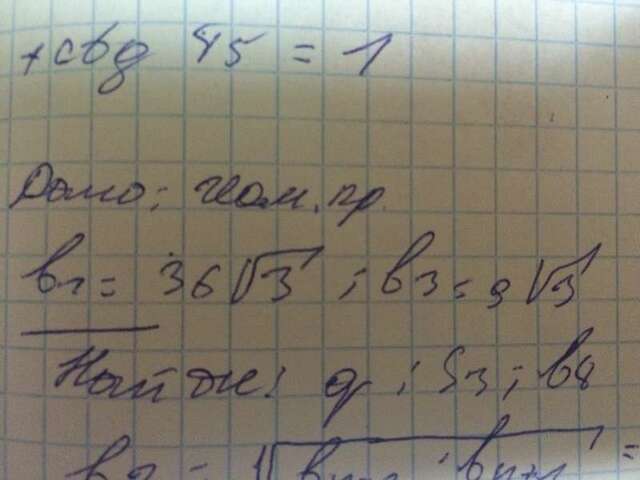 +ctg 45 = 1
Дано: геом. пр.
b₁ = 36√3 ; b₃ = 9√3
Найти: q ; S₃ ; b₈
b₂ = √bₙ₋₁ · bₙ₊₁ =